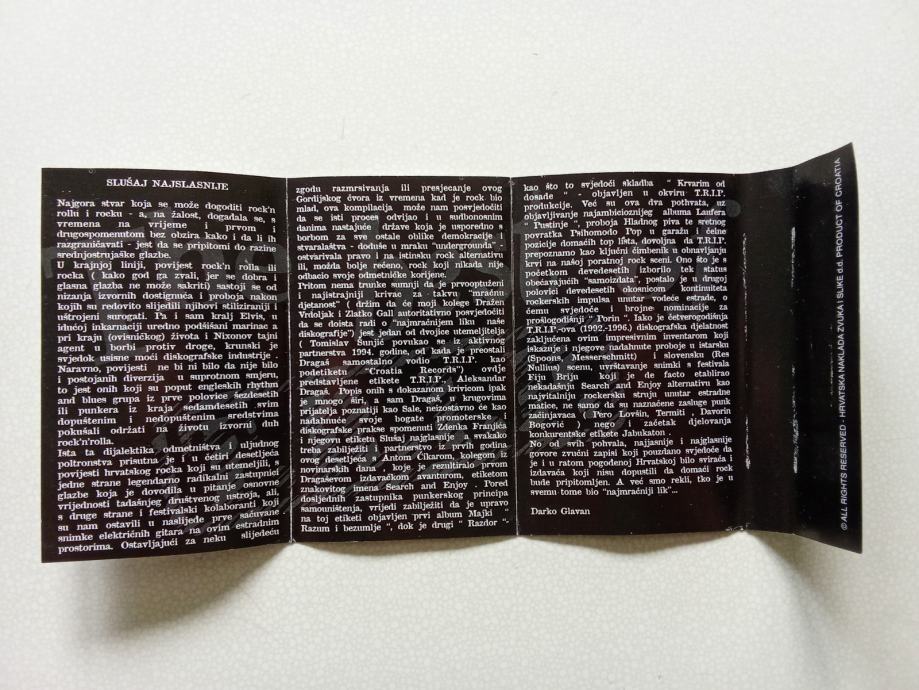 SLUŠAJ NAJSLASNIJE
Najgora stvar koja se može dogoditi rock'n
rollu i rocku - a, na žalost, događala se, s
vremena na vrijeme i prvom i
drugospomenutom bez obzira kako i da li ih
razgraničavati - jest da se pripitomi do razine
srednjostrujaške glazbe.
U krajnjoj liniji, povijest rock'n rolla ili
rocka ( kako god ga zvali, jer se dobra i
glasna glazba ne može sakriti) sastoji se od
nizanja izvornih dostignuća i proboja nakon
kojih su redovito slijedili njihovi stilizirani i
uštrojeni surogati. Pa i sam kralj Elvis, je
idućoj inkarnaciji uredno podšišani marinac a
pri kraju (ovisničkog) života i Nixonov tajni
agent u borbi protiv droge, krunski je
svjedok usisne moći diskografske industrije .
Naravno, povijesti ne bi ni bilo da nije bilo
i postojanih diverzija u suprotnom smjeru,
to jest onih koji su poput engleskih rhythm
and blues grupa iz prve polovice šezdesetih
ili punkera iz kraja sedamdesetih svim
dopuštenim i nedopuštenim sredstvima
pokušali održati na životu izvorni duh
rock'n'rolla.
Ista ta dijalektika odmetništva i uljudnog
poltronstva prisutna je i u četiri desetljeća
povijesti hrvatskog rocka koji su utemeljili, s
jedne strane legendarno radikalni zastupnici
glazbe koja je dovodila u pitanje osnovne
vrijednosti tadašnjeg društvenog ustroja, ali,
s druge strane i festivalski kolaboranti koji
su nam ostavili u naslijeđe prve sačuvane
snimke električnih gitara na ovim estradnim
prostorima. Ostavljajući za neku slijedeću
zgodu razmrsivanja ili presjecanje ovog
Gordijskog čvora iz vremena kad je rock bio
mlad, ova kompilacija može nam posvjedočiti
da se isti proces odvijao i u sudbonosnim
danima nastajuće države koja je usporedno s
borbom za sve ostale oblike demokracije i
stvaralaštva - doduše u mraku "undergrounda" -
ostvarivala pravo i na istinsku rock alternativu
ili, možda bolje rečeno, rock koji nikada nije
odbacio svoje odmetničke korijene.
Pritom nema trunke sumnji da je prvooptuženi
i najistrajniji krivac za takvu "mračnu
djetanost" ( držim da će moji kolege Dražen
Vrdoljak i Zlatko Gall autoritativno posvjedočiti
da se doista radi o "najmračnijem liku naše
diskografije") jest jedan od dvojice utemeljitelja
( Tomislav Šunjić povukao se iz aktivnog
partnerstva 1994. godine, od kada je preostali
Dragaš samostalno vodio T.R.I.P. kao
podetiketu "Croatia Records") ovdje
predstavljene etikete T.R.I.P., Aleksandar
Dragaš. Popis onih s dokazanom krivicom ipak
je mnogo širi, a sam Dragaš, u krugovima
prijatelja poznatiji kao Sale, neizostavno će kao
nadahnuće svoje bogate promoterske i
diskografske prakse spomenuti Zdenka Franjića
i njegovu etiketu Slušaj najglasnije ,a svakako
treba zabilježiti i partnerstvo iz prvih godina
ovog desetljeća s Antom Čikarom, kolegom iz
novinarskih dana koje je rezultiralo prvom
Dragaševom izdavačkom avanturom, etiketom
znakovitog imena Search and Enjoy . Pored
dosljednih zastupnika punkerskog principa
samouništenja, vrijedi zabilježiti da je upravo
na toj etiketi objavljen prvi album Majki "
Razum i bezumlje ", dok je drugi " Razdor ",
kao što to svjedoči skladba " Krvarim od
dosade " - objavljen u okviru T.R.I.P.
produkcije. Već su ova dva pothvata, uz
objavljivanje najambicioznijeg albuma Laufera
" Pustinje ", proboja Hladnog piva te sretnog
povratka Psihomodo Pop u garažu i čelne
pozicije domaćih top lista, dovoljna da T.R.I.P.
prepoznamo kao ključni čimbenik u obnavljanju
krvi na našoj poratnoj rock sceni. Ono što je s
početkom devedesetih izborilo tek status
obećavajućih "samoizdata", postalo je u drugoj
polovici devedesetih okosnicom kontinuiteta
rockerskih impulsa unutar vodeće estrade, o
čemu svjedoče i brojne nominacije za
prošlogodišnji " Porin ". Iako je četverogodišnja
T.R.I.P.-ova (1992.-1996.) diskografska djelatnost
zaključena ovim impresivnim inventarom koji
iskazuje i njegove nadahnute proboje u istarsku
(Spoons, Messerschmitt) i slovensku (Res
Nullius) scenu, uvrštavanje snimki s festivala
Fiju Briju koji je de facto etablirao
nekadašnju Search and Enjoy alternativu kao
najvitalniju rockersku struju unutar estradne
matice, ne samo da su naznačene zasluge punk
začinjavaca ( Pero Lovšin, Termiti , Davorin
Bogović ) nego i začetak djelovanja
konkurentske etikete Jabukaton .
No od svih pohvala, najjasnije i najglasnije
govore zvučni zapisi koji pouzdano svjedoče da
je i u ratom pogođenoj Hrvatskoj bilo svirača i
izdavača koji nisu dopustili da domaći rock
bude pripitomljen. A već smo rekli, tko je u
svemu tome bio "najmračniji lik"...
Darko Glavan
© ALL RIGHTS RESERVED - HRVATSKA NAKLADA ZVUKA I SLIKE d.d. PRODUCT OF CROATIA